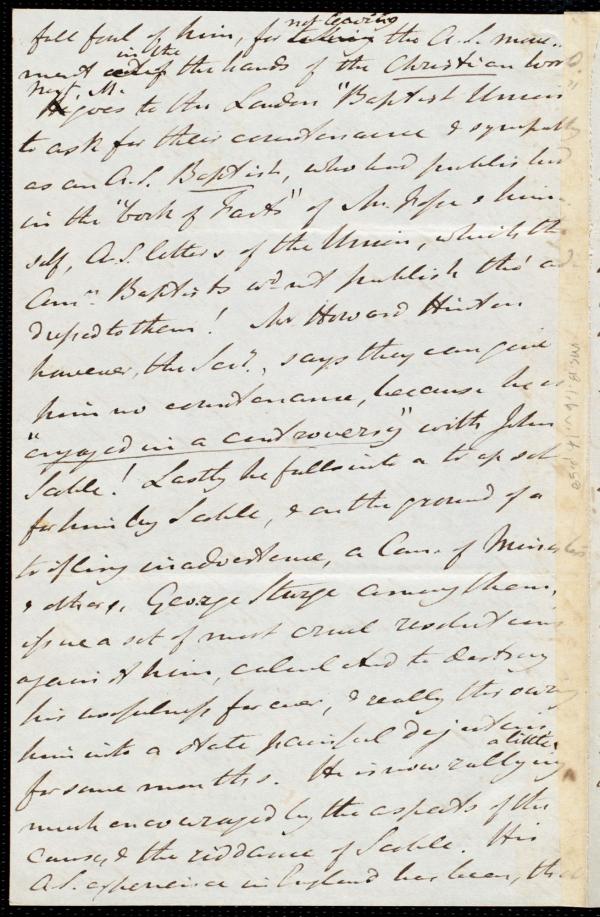 fall foul of him, for not leaving the A.S. move-
ment in the hands of the Christian wor
Next, Mr. goes to the London "Baptist Union"
to ask for their countenance & sympathy
as an A.S. Baptist, who had published
in the "book of Facts" of Mr. Pope & him-
self, A.S. letters of the Union, which the
Amn. Baptists wd. not publish tho' ad-
dressed to them! Mr Howard Hinton
however, the Sec., says they can give
him no countenance, because he is
"engaged in a controversy" with John
Scoble! Lastly he falls into a trap set
for him by Scoble, & on the ground of a
trifling inadvertence, a Com. of Ministers
& others, George Sturge among them,
issue a set of most cruel resolutions
against him, calculated to destroy
his usefulness for ever, & really throwing
him into a state painful dejection
for some months. He is now rallying a little
much encouraged by the aspects of the
cause, & the riddance of Scoble. His
A.S. experience in England has been, tho